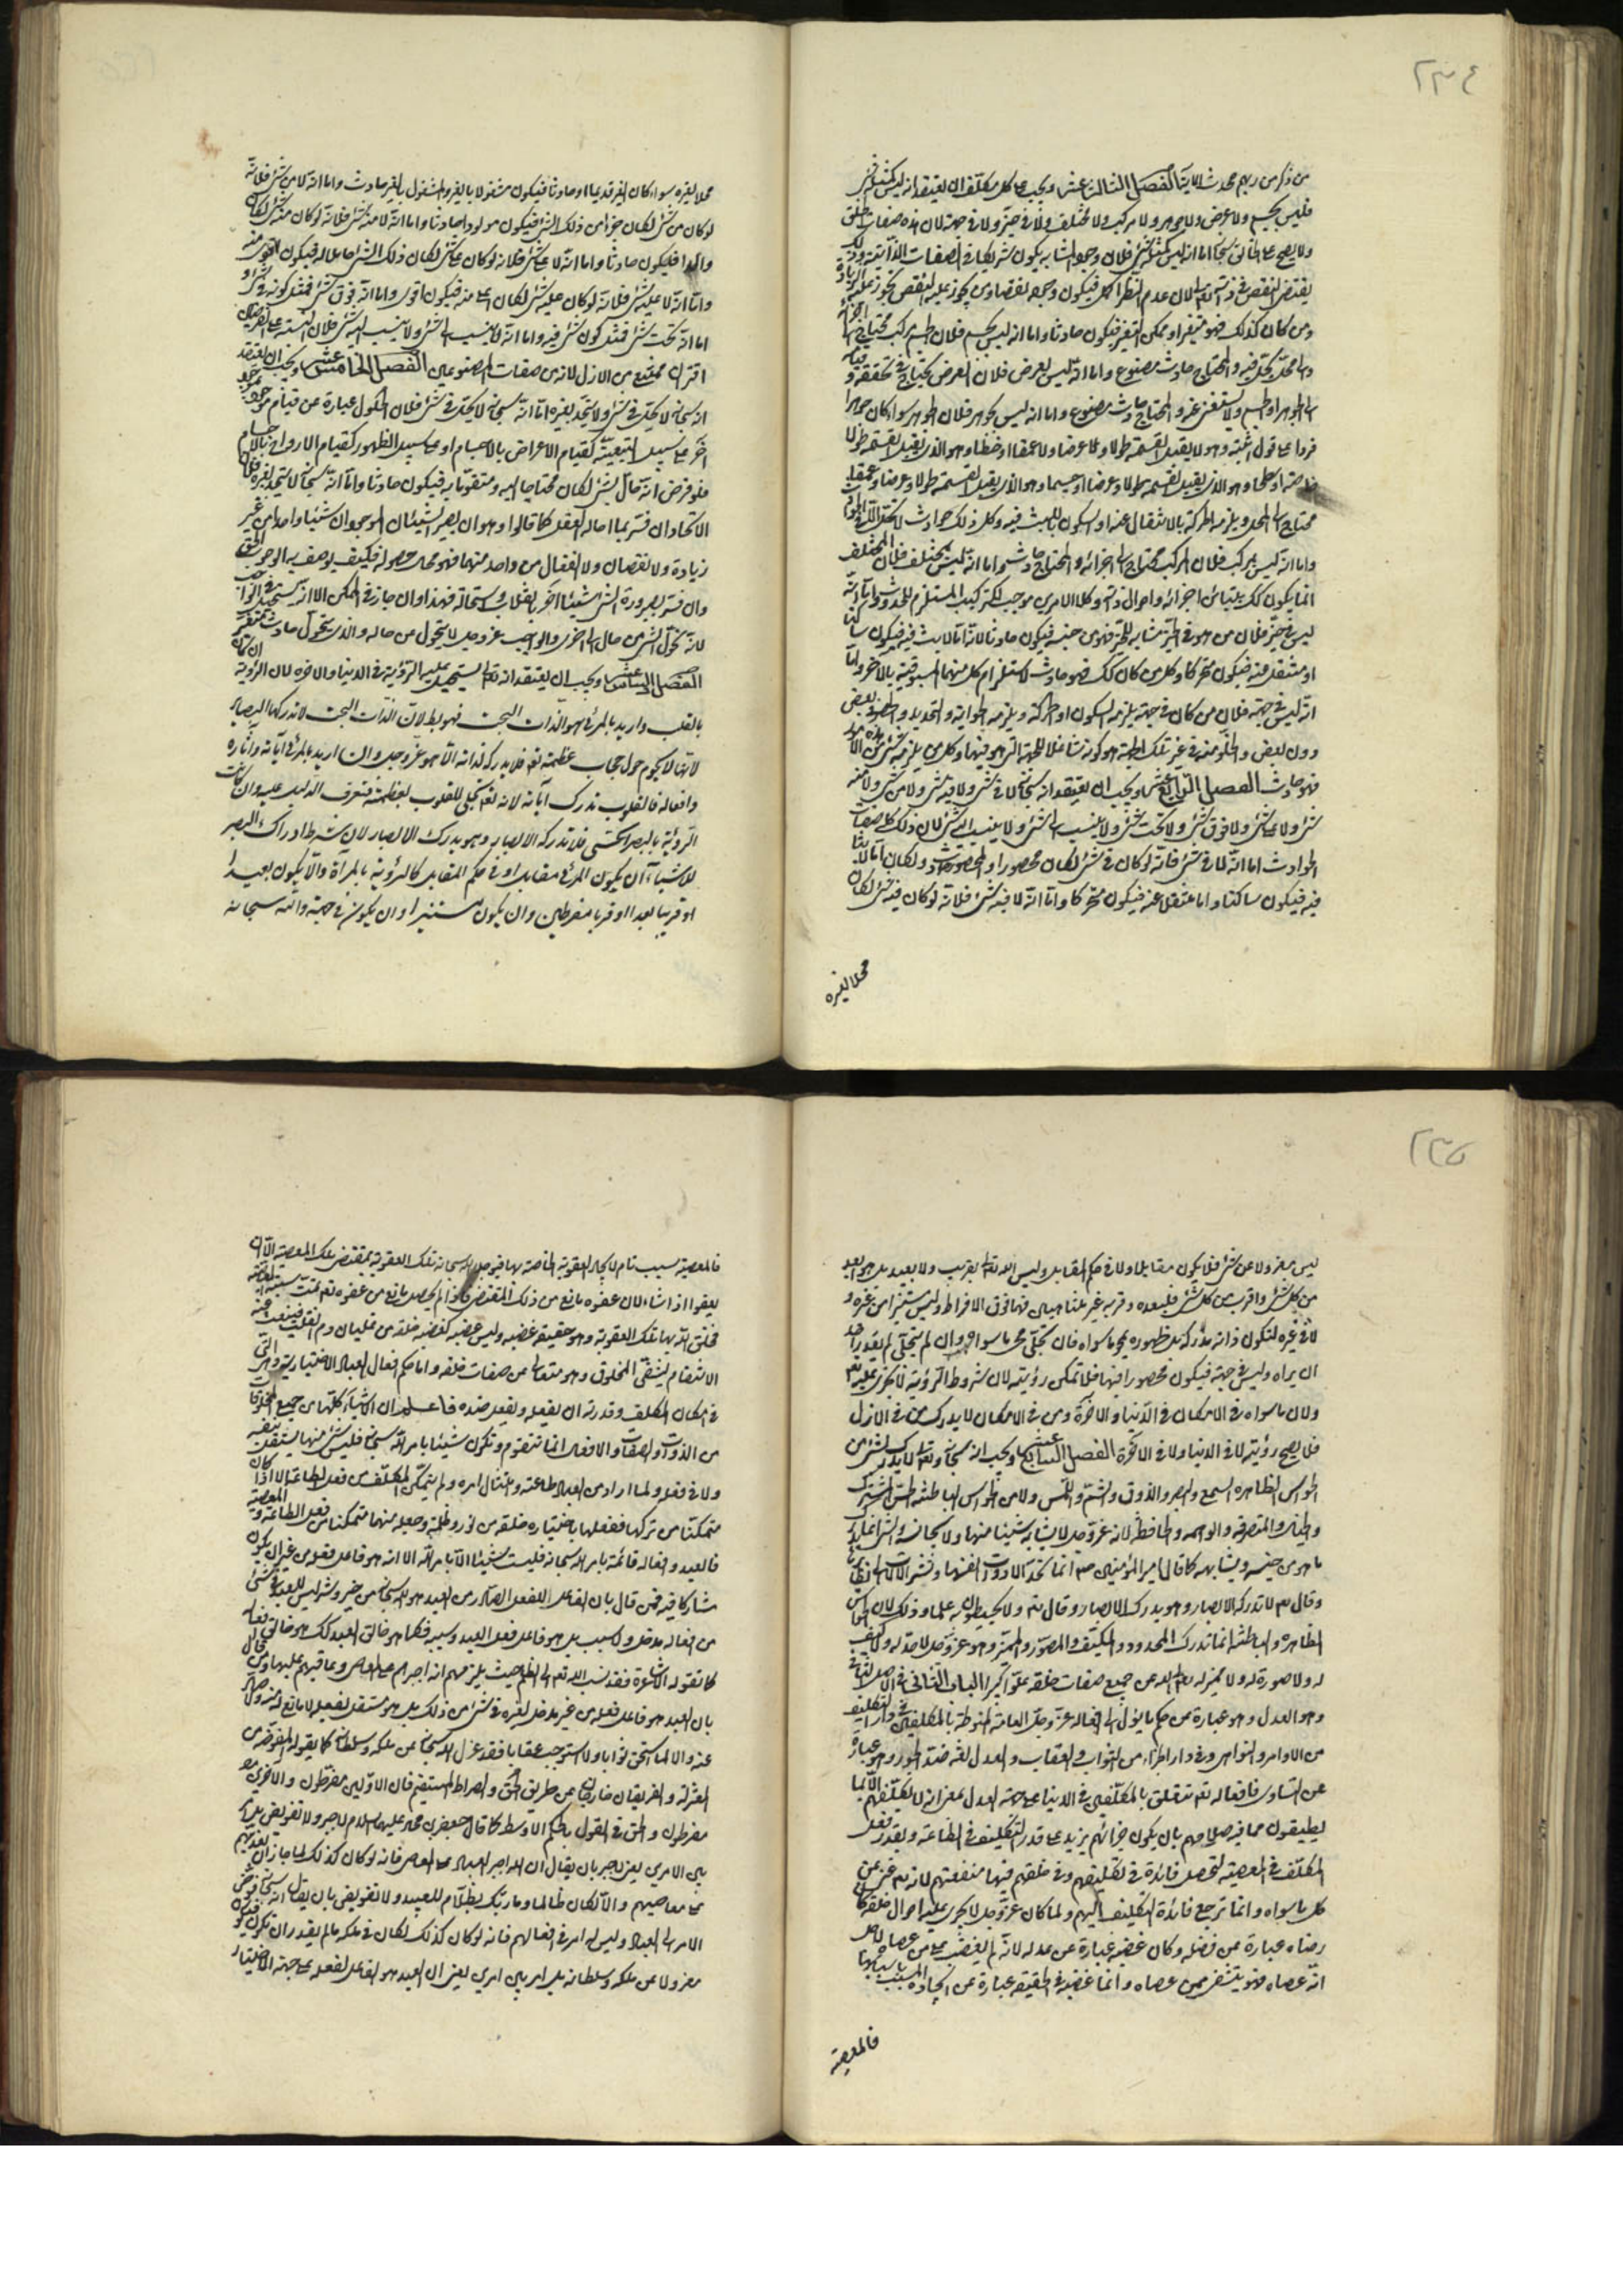 ٢٣٤
من ذكر من ربهم محدث الاية الفصل الثالث عشر ويجب على كل مكلف ان يعتقد انه ليس كمثله شئ
فليس بجسم ولا عرض ولا جوهر ولا مركب ولا مختلف ولا في حيز ولا في جهة لان هذه صفات الخلق
ولا يصح على الخالق سبحانه اما انه ليس كمثله شئ فلان وجود المشابه يكون شريكا في الصفات الذاتية وذلك
يقتضي النقص في ذاته تعالى لان عدم النظير اكمل فيكون وجوده نقصا ومن يجوز عليه النقص يجوز عليه الزيادة
ومن كان كذلك فهو متغير او ممكن التغير فيكون حادثا واما انه ليس بجسم فلان الجسم مركب محتاج الى اجزائه
والى محل يحل فيه والمحتاج حادث مصنوع واما انه ليس بعرض فلان العرض يحتاج في تحققه وقيامه
الى الجوهر او الجسم ولا يستغني عنه والمحتاج حادث مصنوع واما انه ليس بجوهر فلان الجوهر سواء كان جوهرا
فردا على قول مثبته وهو لا يقبل القسمة طولا ولا عرضا ولا عمقا او خطا وهو الذي يقبل القسمة طولا
خاصة او سطحا وهو الذي يقبل القسمة طولا وعرضا او جسما وهو الذي يقبل القسمة طولا وعرضا وعمقا
محتاج الى المحل ويلزمه الحركة بالانتقال عنه او السكون باللبث فيه وكل ذلك حوادث لا تحل الا في الحوادث
واما انه ليس بمركب فلان المركب محتاج الى اجزائه والمحتاج حادث واما انه ليس بمختلف فلان المختلف
انما يكون كذلك بتباين اجزائه واحوال ذاته وكلا الامرين موجب للتركيب المستلزم للحدوث واما انه
ليس في حيز فلان من هو في الحيز مشابه للحيز فهو من جنسه فيكون حادثا لانه اما لابث فيه فيكون ساكنا
او منتقل عنه فيكون متحركا وكل من كان كذلك فهو حادث لاستلزام كل منهما المسبوقية بالاخر واما
انه ليس في جهة فلان من كان في جهة يلزمه السكون او الحركة ويلزمه الحواية والتحديد والحضور في بعض
دون بعض والخلو منه في غير تلك الجهة هو كونه شاغلا للجهة التي هو فيها وكل من يلزمه شئ من هذه الامور
فهو حادث الفصل الرابع عشر ويجب ان يعتقد انه سبحانه لا في شئ ولا فيه شئ ولا من شئ ولا منه
شئ ولا على شئ ولا فوق شئ ولا تحت شئ ولا ينسب الى شئ ولا ينسب اليه شئ لان ذلك كله صفات
الحوادث اما انه لا في شئ فانه لو كان في شئ لكان محصورا والمحصور حادث ولكان اما لابثا
فيه فيكون ساكنا واما منتقلا عنه فيكون متحركا واما انه لا فيه شئ فلانه لو كان فيه شئ لكان
محلا لغيره
محلا لغيره سواء كان الغير قديما او حادثا فيكون مشغولا بالغير والمشغول بالغير حادث واما انه لا من شئ فلانه
لو كان من شئ لكان جزأ من ذلك الشئ فيكون مولودا حادثا واما انه لا منه شئ فلانه لو كان منه شئ لكان
والدا فيكون حادثا واما انه لا على شئ فلانه لو كان على شئ لكان ذلك الشئ حاملا له فيكون اقوى منه
واما انه لا عليه شئ فلانه لو كان عليه شئ لكان اعلى منه فيكون اقوى واما انه فوق شئ فمثل كونه في شئ او
اما انه تحت شئ فمثل كون شئ فيه واما انه لا ينسب الى شئ ولا ينسب اليه شئ فلان النسبة على الفرضين
اقتران ممتنع من الازل لانه من صفات المصنوعين الفصل الخامس عشر ويجب ان يعتقد
انه سبحانه لا يحل في شئ ولا يتحد بغيره اما انه سبحانه لا يحل في شئ فلان الحلول عبارة عن قيام موجود بموجود
آخر على سبيل التبعية كقيام الاعراض بالاجسام او على سبيل الظهور كقيام الارواح بالاجسام
فلو فرض انه حال بشئ لكان محتاجا اليه ومتقوما به فيكون حادثا واما انه سبحانه لا يتحد بغيره فلان
الاتحاد ان فسر بما احاله العقل كما قالوا وهو ان يصير الشيئان الموجودان شيئا واحدا من غير
زيادة ولا نقصان ولا انفعال من واحد منهما فهو محال حصوله فكيف يوصف به الواجب الحق
وان فسر بصيرورة الشئ شيئا آخر بانقلاب واستحالة فهذا وان جاز في الممكن الا انه يستحيل في الواجب
لانه تحول الشئ من حال الى اخرى والواجب عز وجل لا يتحول من حاله والذي يتحول حادث متغير
الفصل السادس عشر ويجب ان يعتقد انه تعالى يستحيل عليه الرؤية في الدنيا والاخرة لان الرؤية ان كانت
بالقلب واريد بالمرئي هو الذات البحت فهو باطل لان الذات البحت لا تدركها البصائر
لانها لا تحوم حول حجاب عظمته تعالى فلا يدرك كنه ذاته الا هو عز وجل وان اريد بالمرئي آياته وآثاره
وافعاله فالقلوب تدرك آياته لانه تعالى تجلى للقلوب بعظمته فتعرف الدليل عليه وان كانت
الرؤية بالبصر الحسي فلا تدركه الابصار وهو يدرك الابصار لان شرط ادراك البصر
للاشياء ان يكون المرئي مقابلا او في حكم المقابل كالرؤية بالمرآة والا يكون بعيدا
او قريبا بعدا او قربا مفرطين وان يكون مستنيرا وان يكون في جهة والله سبحانه
٢٣٥
ليس معزولا عن شئ فلا يكون مقابلا ولا في حكم المقابل وليس الله تعالى بقريب ولا بعيد بل هو ابعد
من كل شئ واقرب من كل شئ فبعده وقربه غير متناهيين فهما فوق الافراط وليس مستنيرا من غيره و
لا في غيره لتكون ذاته مدركة بل ظهوره يمحو ما سواه فان تجلى محى ما سواه وان لم يتجلى لم يقدر احد
ان يراه وليس في جهة فيكون محصورا فيها فلا تمكن رؤيته لان شروط الرؤية لا تجري عليه تعالى
ولان ما سواه في الامكان في الدنيا والاخرة ومن في الامكان لا يدرك من في الازل
فلا يصح رؤيته لا في الدنيا ولا في الاخرة الفصل السابع عشر ويجب انه سبحانه وتعالى لا يدرك بشئ من
الحواس الظاهرة السمع والبصر والذوق والشم واللمس ولا من الحواس الباطنة الحس المشترك
والخيال والمتصرفة والواهمة والحافظة لانه عز وجل لا يشابه شيئا منها ولا يجانسه والشئ انما يدرك
ما هو من جنسه ويشابهه كما قال امير المؤمنين ع انما تحد الادوات انفسها وتشير الآلات الى نظائرها
وقال تعالى لا تدركه الابصار وهو يدرك الابصار وقال تعالى ولا يحيطون به علما وذلك لان الحواس
الظاهرة والباطنة انما تدرك المحدود والمكيف والمصور والمميز وهو عز وجل لا حد له ولا كيف
له ولا صورة له ولا تميز له تعالى الله عن جميع صفات خلقه علوا كبيرا الباب الثاني في الاصل الثاني
وهو العدل وهو عبارة عن حكم ما يؤل الى افعاله عز وجل العامة المنوطة بالمكلفين في دار التكليف
من الاوامر والنواهي وفي دار الجزاء من الثواب والعقاب والعدل لغة ضد الجور وهو عبارة
عن التساوي فافعاله تعالى تتعلق بالمكلفين في الدنيا على جهة العدل بمعنى انه لا يكلفهم الا بما
يطيقون مما فيه صلاحهم بان يكون جزائهم يزيد على قدر التكليف في الطاعة وبقدر فعل
المكلف في المعصية لتحصل فائدة في تكليفهم وفي خلقهم فيها منفعتهم لانه تعالى غني عن
كل ما سواه وانما ترجع فائدة التكليف اليهم ولما كان عز وجل لا يجري عليه احوال خلقه كان
رضاه عبارة عن فضله وكان غضبه عبارة عن عدله لانه لم يغضب على من عصاه لاجل
انه عصاه فهو يتشفى ممن عصاه وانما غضبه في الحقيقة عبارة عن ايجاد المسبب باسبابها
فالمعصية
فالمعصية سبب تام لايجاد العقوبة الخاصة بها فيوجد الله سبحانه تلك العقوبة بمقتضى تلك المعصية الا ان
يعفو اذا شاء لان عفوه مانع من ذلك المقتضى فاذا لم يحصل مانع من عفوه تمت سببية المعصية
فخلق الله بها تلك العقوبة وهو حقيقة غضبه وليس غضبه كغضب خلقه من غليان دم القلب فينبعث منه
الانتقام ليتشفى المخلوق وهو متعال عن صفات خلقه واما حكم افعال العباد الاختيارية وهي التي
في امكان المكلف وقدرته ان يفعله ويفعل ضده فاعلم ان الاشياء كلها من جميع المخلوقات
من الذوات والصفات والافعال انما تتقوم وتكون شيئا بامر الله سبحانه فليس شئ منها يستقل بنفسه
ولا في فعله ولما اراد من العباد طاعته وامتثال امره ولم يتمكن المكلف من فعل الطاعة الا اذا كان
متمكنا من تركها ففعلها باختياره خلقه من نور وظلمة وجعله منهما متمكنا من فعل الطاعة والمعصية
فالعبد وافعاله قائمة بامر الله سبحانه فليست شيئا الا بامر الله الا انه هو فاعل فعله من غير ان يكون
مشاركا فيه فمن قال بان الفاعل للفعل الصادر من العبد هو الله سبحانه من خير وشر ليس للعبد في شئ
من افعاله مدخل ولا سبب بل هو فاعل فعل العبد وسببه فكما هو خالق العبد كذلك هو خالق فعله
كما تقوله الاشاعرة فقد نسب الله تعالى الى الظلم حيث يلزمهم انه اجبرهم على المعاصي وعاقبهم عليها ومن قال
بان العبد هو فاعل فعله من غير مدخل لغيره في شئ من ذلك بل هو مستقل بفعله لا مانع له منه ولا صاد
عنه والا لما استحق ثوابا ولا استوجب عقابا فقد عزل الله سبحانه عن ملكه وسلطانه كما يقوله المفوضة من
المعتزلة والفريقان خارجان عن طريق الحق والصراط المستقيم فان الاولين مفرطون والآخرين
مفرطون والحق في القول بالحكم الاوسط كما قال جعفر بن محمد عليهما السلام لا جبر ولا تفويض بل امر
بين الامرين يعني لا جبر بان يقال ان الله اجبر العباد على المعاصي فانه لو كان كذلك لما جاز ان يعذبهم
على معاصيهم والا لكان ظالما وما ربك بظلام للعبيد ولا تفويض بان يقال انه سبحانه فوض
الامر الى العباد وليس له امر في افعالهم فانه لو كان كذلك لكان في ملكه ما لم يقدر ان يكون فيكون
معزولا عن ملكه وسلطانه بل امر بين امرين يعني ان العبد هو الفاعل لفعله على جهة الاختيار